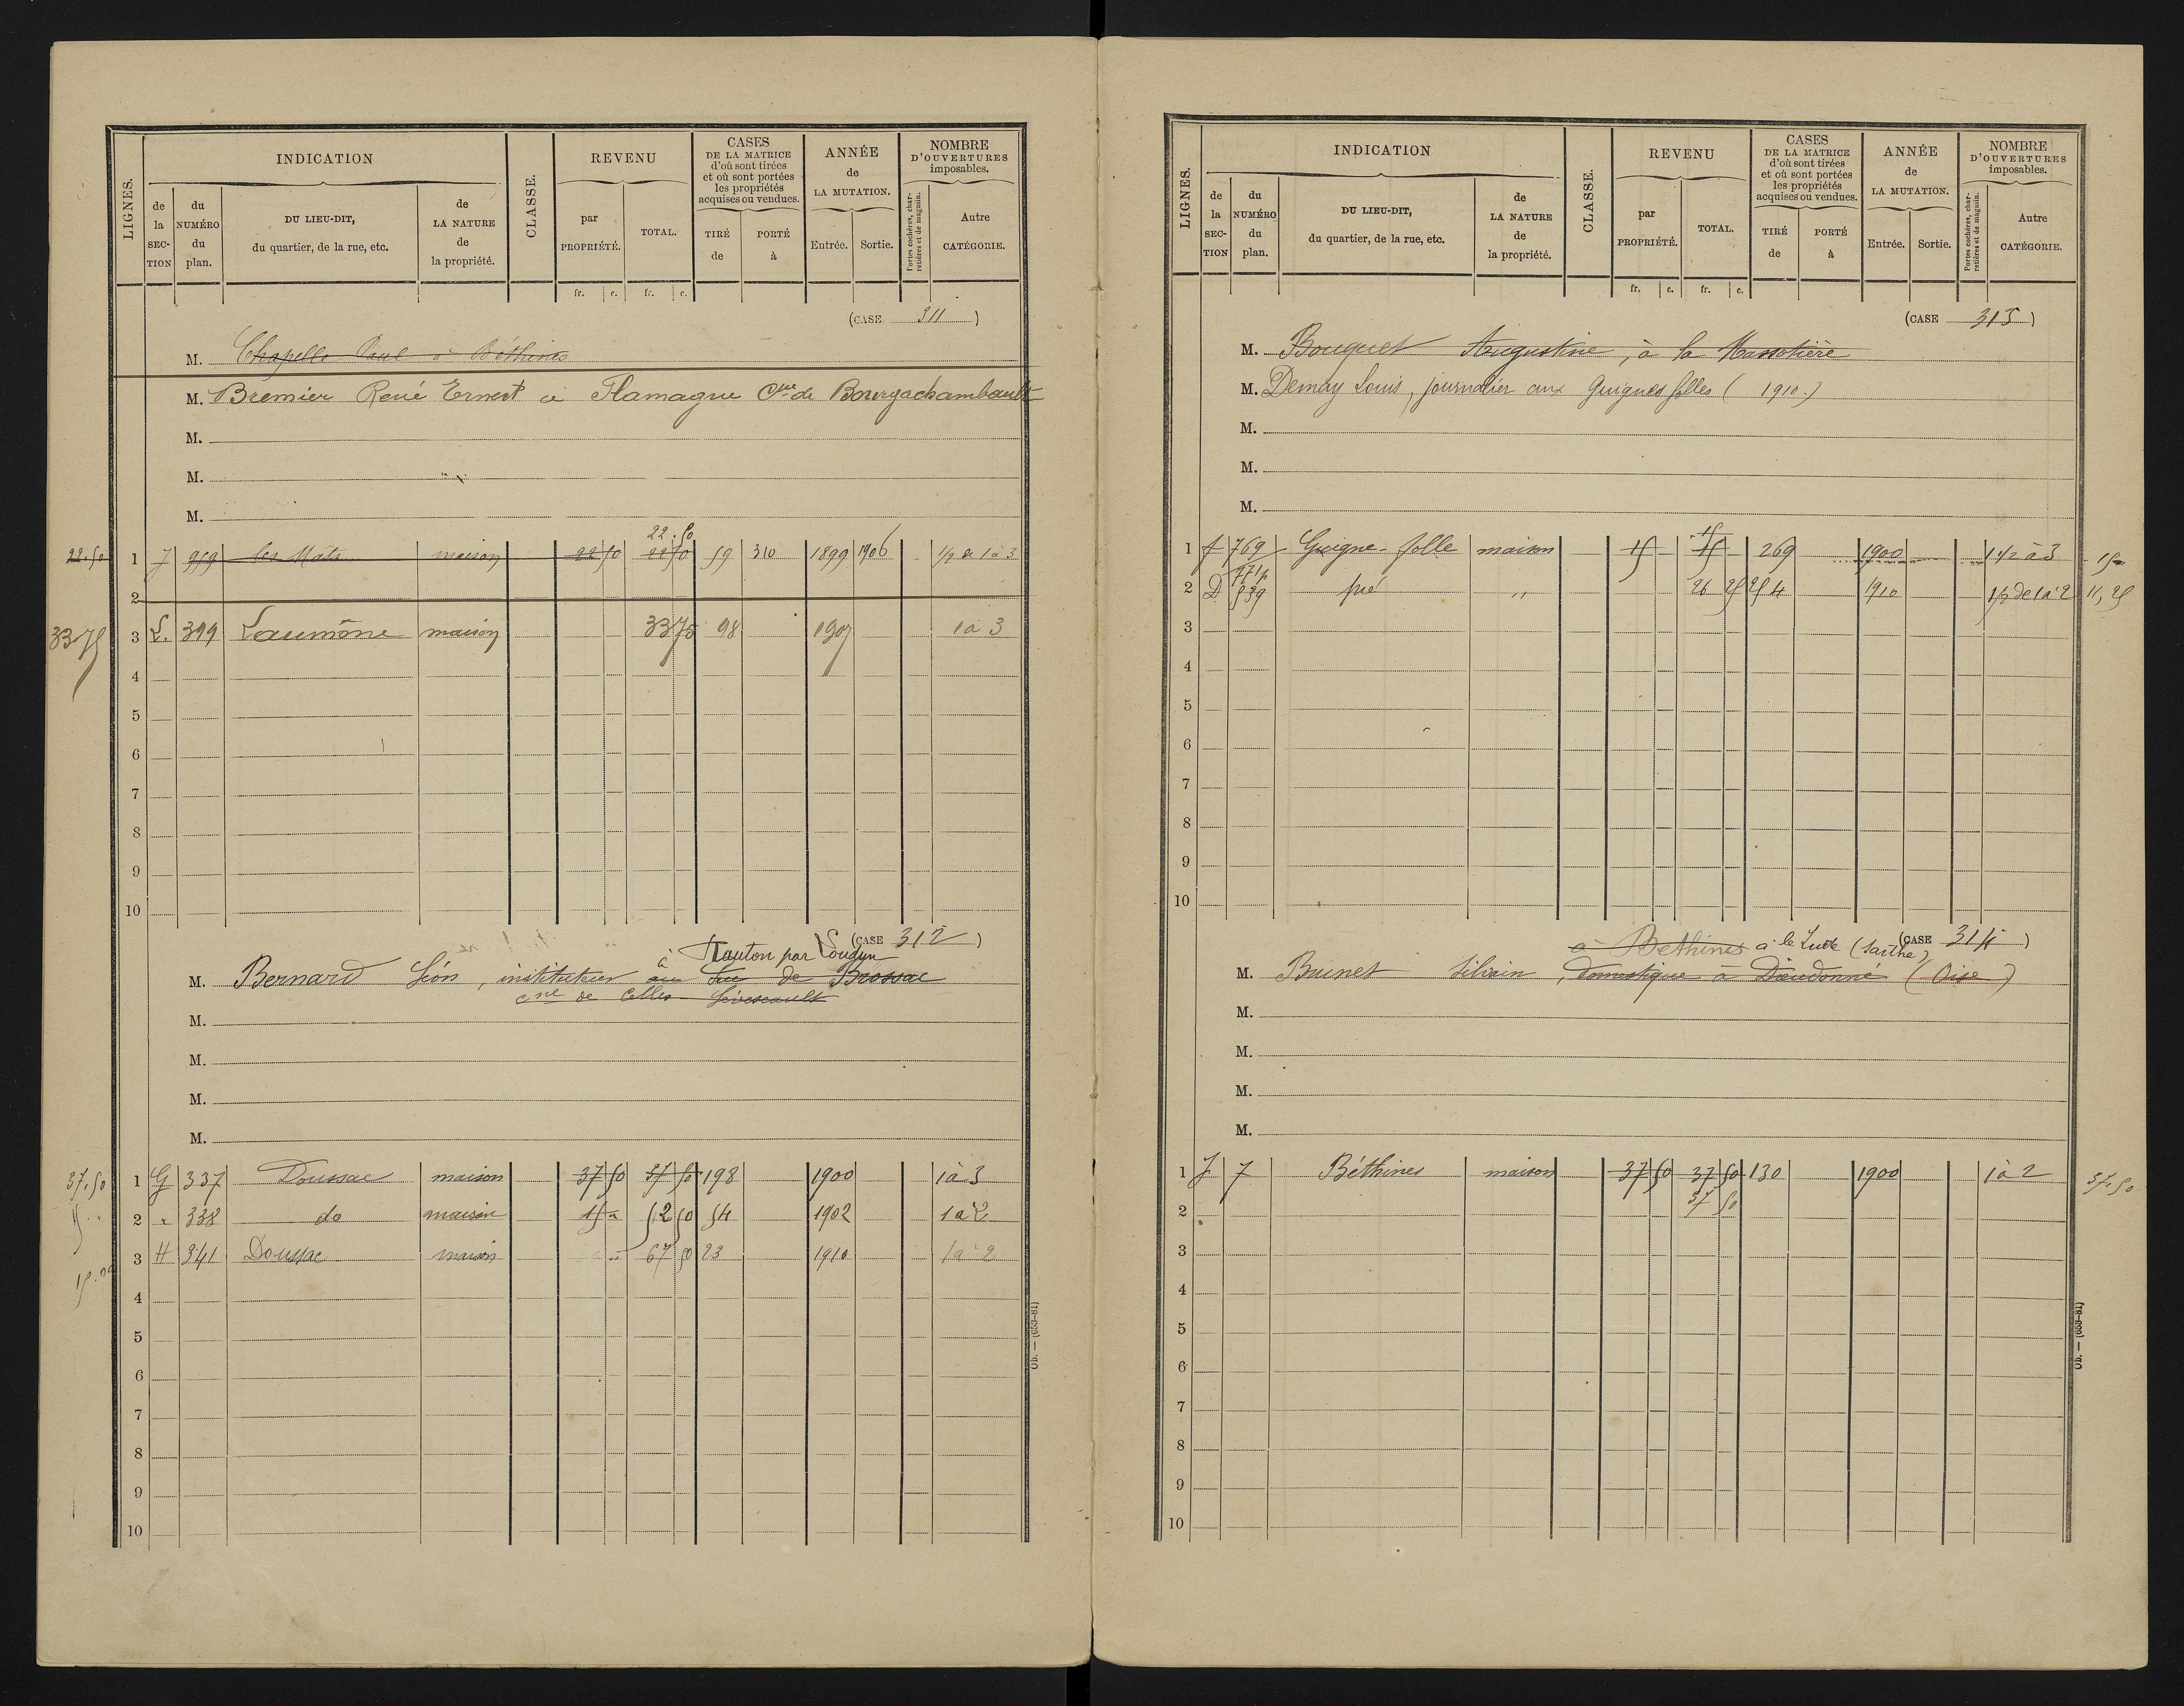 LIGNES.
INDICATION
de la SECTION
du NUMÉRO du plan.
DU LIEU-DIT, du quartier, de la rue, etc.
de LA NATURE de la propriété.
CLASSE.
REVENU
par PROPRIÉTÉ.
TOTAL.
CASES DE LA MATRICE d'où sont tirées et où sont portées les propriétés acquises ou vendues.
TIRÉ de
PORTÉ à
ANNÉE de LA MUTATION.
Entrée.
Sortie.
NOMBRE D'OUVERTURES imposables.
Portes cochères, charretières et de magasin.
Autre CATÉGORIE.
fr. c. fr. c.
(CASE 311)
M. Chapelle Paul à Béthines
M. Bremier René Ernest à Flamagne Cne de Bourgachambault
M.
M.
M.
22.50
22.50 1 J 959 les Mats maison 22 50 22 50 59 310 1899 1906 1/2 de 1 à 3
2
33 75 3 L. 399 Laumône maison 33 75 98 1907 1 à 3
4
5
6
7
8
9
10
(CASE 312)
à Tauton par Loudun
M. Bernard Léon, instituteur au Luc de Brossac
cne de Celles-Lévescault
M.
M.
M.
M.
37.50 1 G 337 Doussac maison 37 50 37 50 198 1900 1 à 3
15 .. 2 " 338 do maison 15 " 52 50 54 1902 1 à 2
15.00 3 H 341 Doussac maison .. 67 50 23 1910 1 à 2
4
5
6
7
8
9
10
Ob. — (653-81)
LIGNES.
INDICATION
de la SECTION
du NUMÉRO du plan.
DU LIEU-DIT, du quartier, de la rue, etc.
de LA NATURE de la propriété.
CLASSE.
REVENU
par PROPRIÉTÉ.
TOTAL.
CASES DE LA MATRICE d'où sont tirées et où sont portées les propriétés acquises ou vendues.
TIRÉ de
PORTÉ à
ANNÉE de LA MUTATION.
Entrée.
Sortie.
NOMBRE D'OUVERTURES imposables.
Portes cochères, charretières et de magasin.
Autre CATÉGORIE.
fr. c. fr. c.
(CASE 313)
M. Bouquet Augustine, à la Massotière
M. Demay Louis, journalier aux Guignes folles (1910.)
M.
M.
M.
15
1 f 769 Guigne-folle maison 15 15 269 1900 1 1/2 à 3 15
771p
2 D 539 pré " 26 25 254 1910 1/2 de 1 à 2 11,25
3
4
5
6
7
8
9
10
(CASE 314)
à Bethines à le Lude (Sarthe)
M. Brunet Silvain, domestique à Dieudonné (Oise)
M.
M.
M.
M.
1 J 7 Béthines maison 37 50 37 50 130 1900 1 à 2 37.50
2 37 50
3
4
5
6
7
8
9
10
Ob. — (653-81)